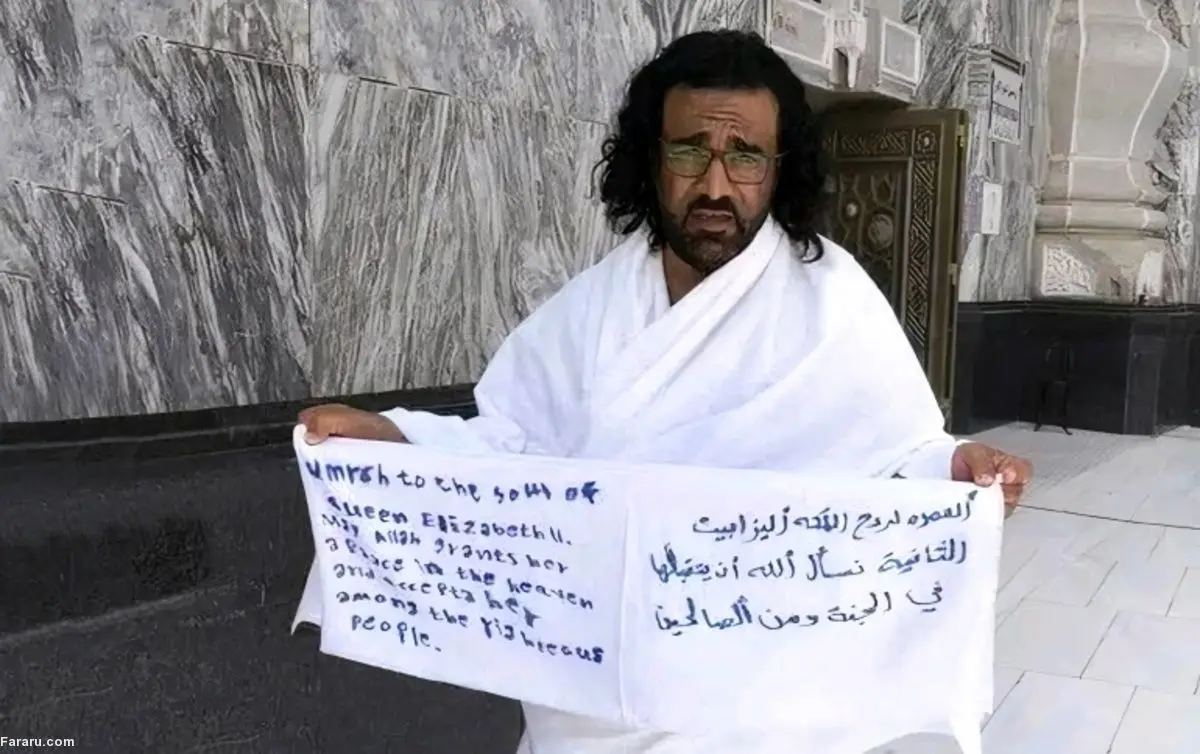 Umrah to the soul of
Queen Elizabeth II.
May Allah grants her
a place in the heaven
and accepts her
among the righteous
people.
ألعمره لروح الملكه أليزابيت
الثانية نسأل ألله أن يتقبلها
في الجنة ومن ألصالحين
Fararu.com